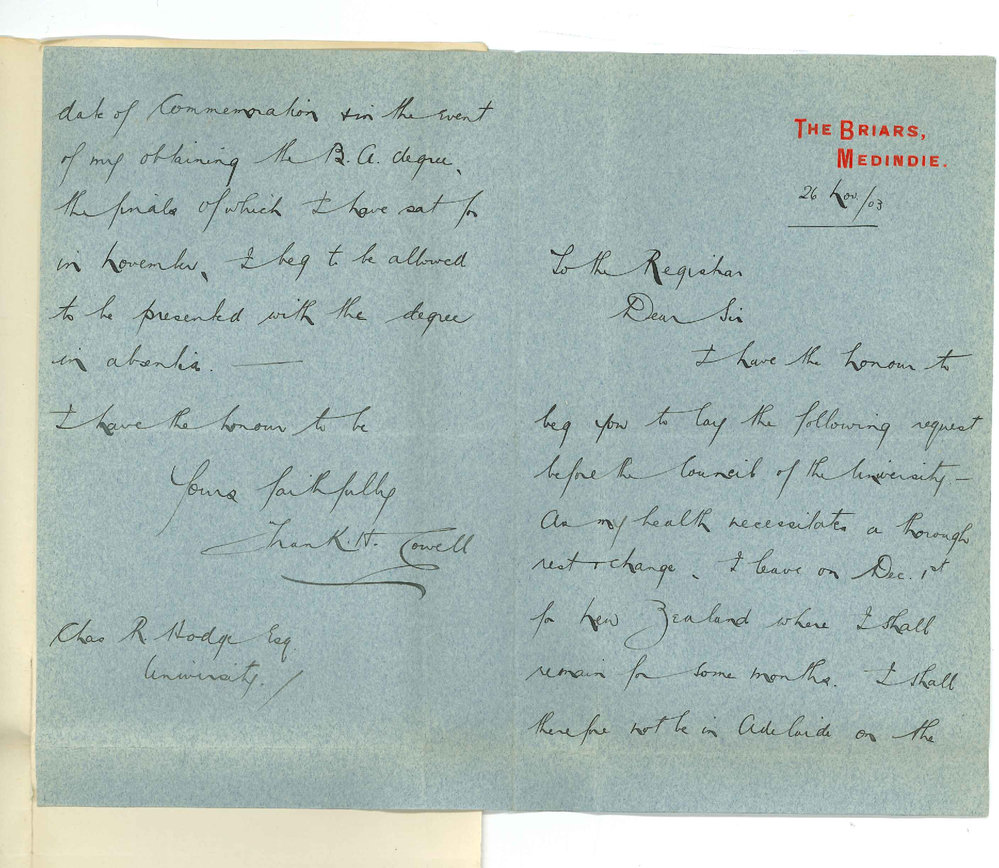 THE BRIARS,
MEDINDIE.
26 Nov./03
To the Registrar
Dear Sir
I have the honour to
beg you to lay the following request
before the Council of the University –
As my health necessitates a thorough
rest + change, I leave on Dec. 1st
for New Zealand where I shall
remain for some months. I shall
therefore not be in Adelaide on the
date of Commemoration & in the event
of my obtaining the B.A. degree,
the finals of which I have sat for
in November, I beg to be allowed
to be presented with the degree
in absentia. —
I have the honour to be
Yours faithfully
Frank. H. Cowell
Chas R Hodge Esq.
University. /